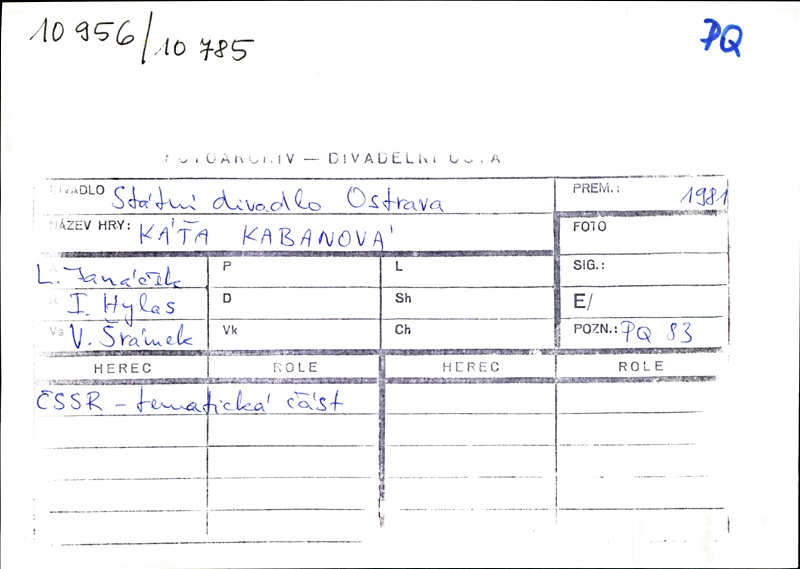 10 956/10 785
PQ
FOTOARCHIV — DIVADELNÍ
DIVADLO Státní divadlo Ostrava PREM.: 1981
NÁZEV HRY: KÁŤA KABANOVÁ FOTO
L. Janáček P L SIG.:
I. Hylas D Sh E/
Vs V. Šrámek Vk Ch POZN.: PQ 83
HEREC ROLE HEREC ROLE
ČSSR – tematická část